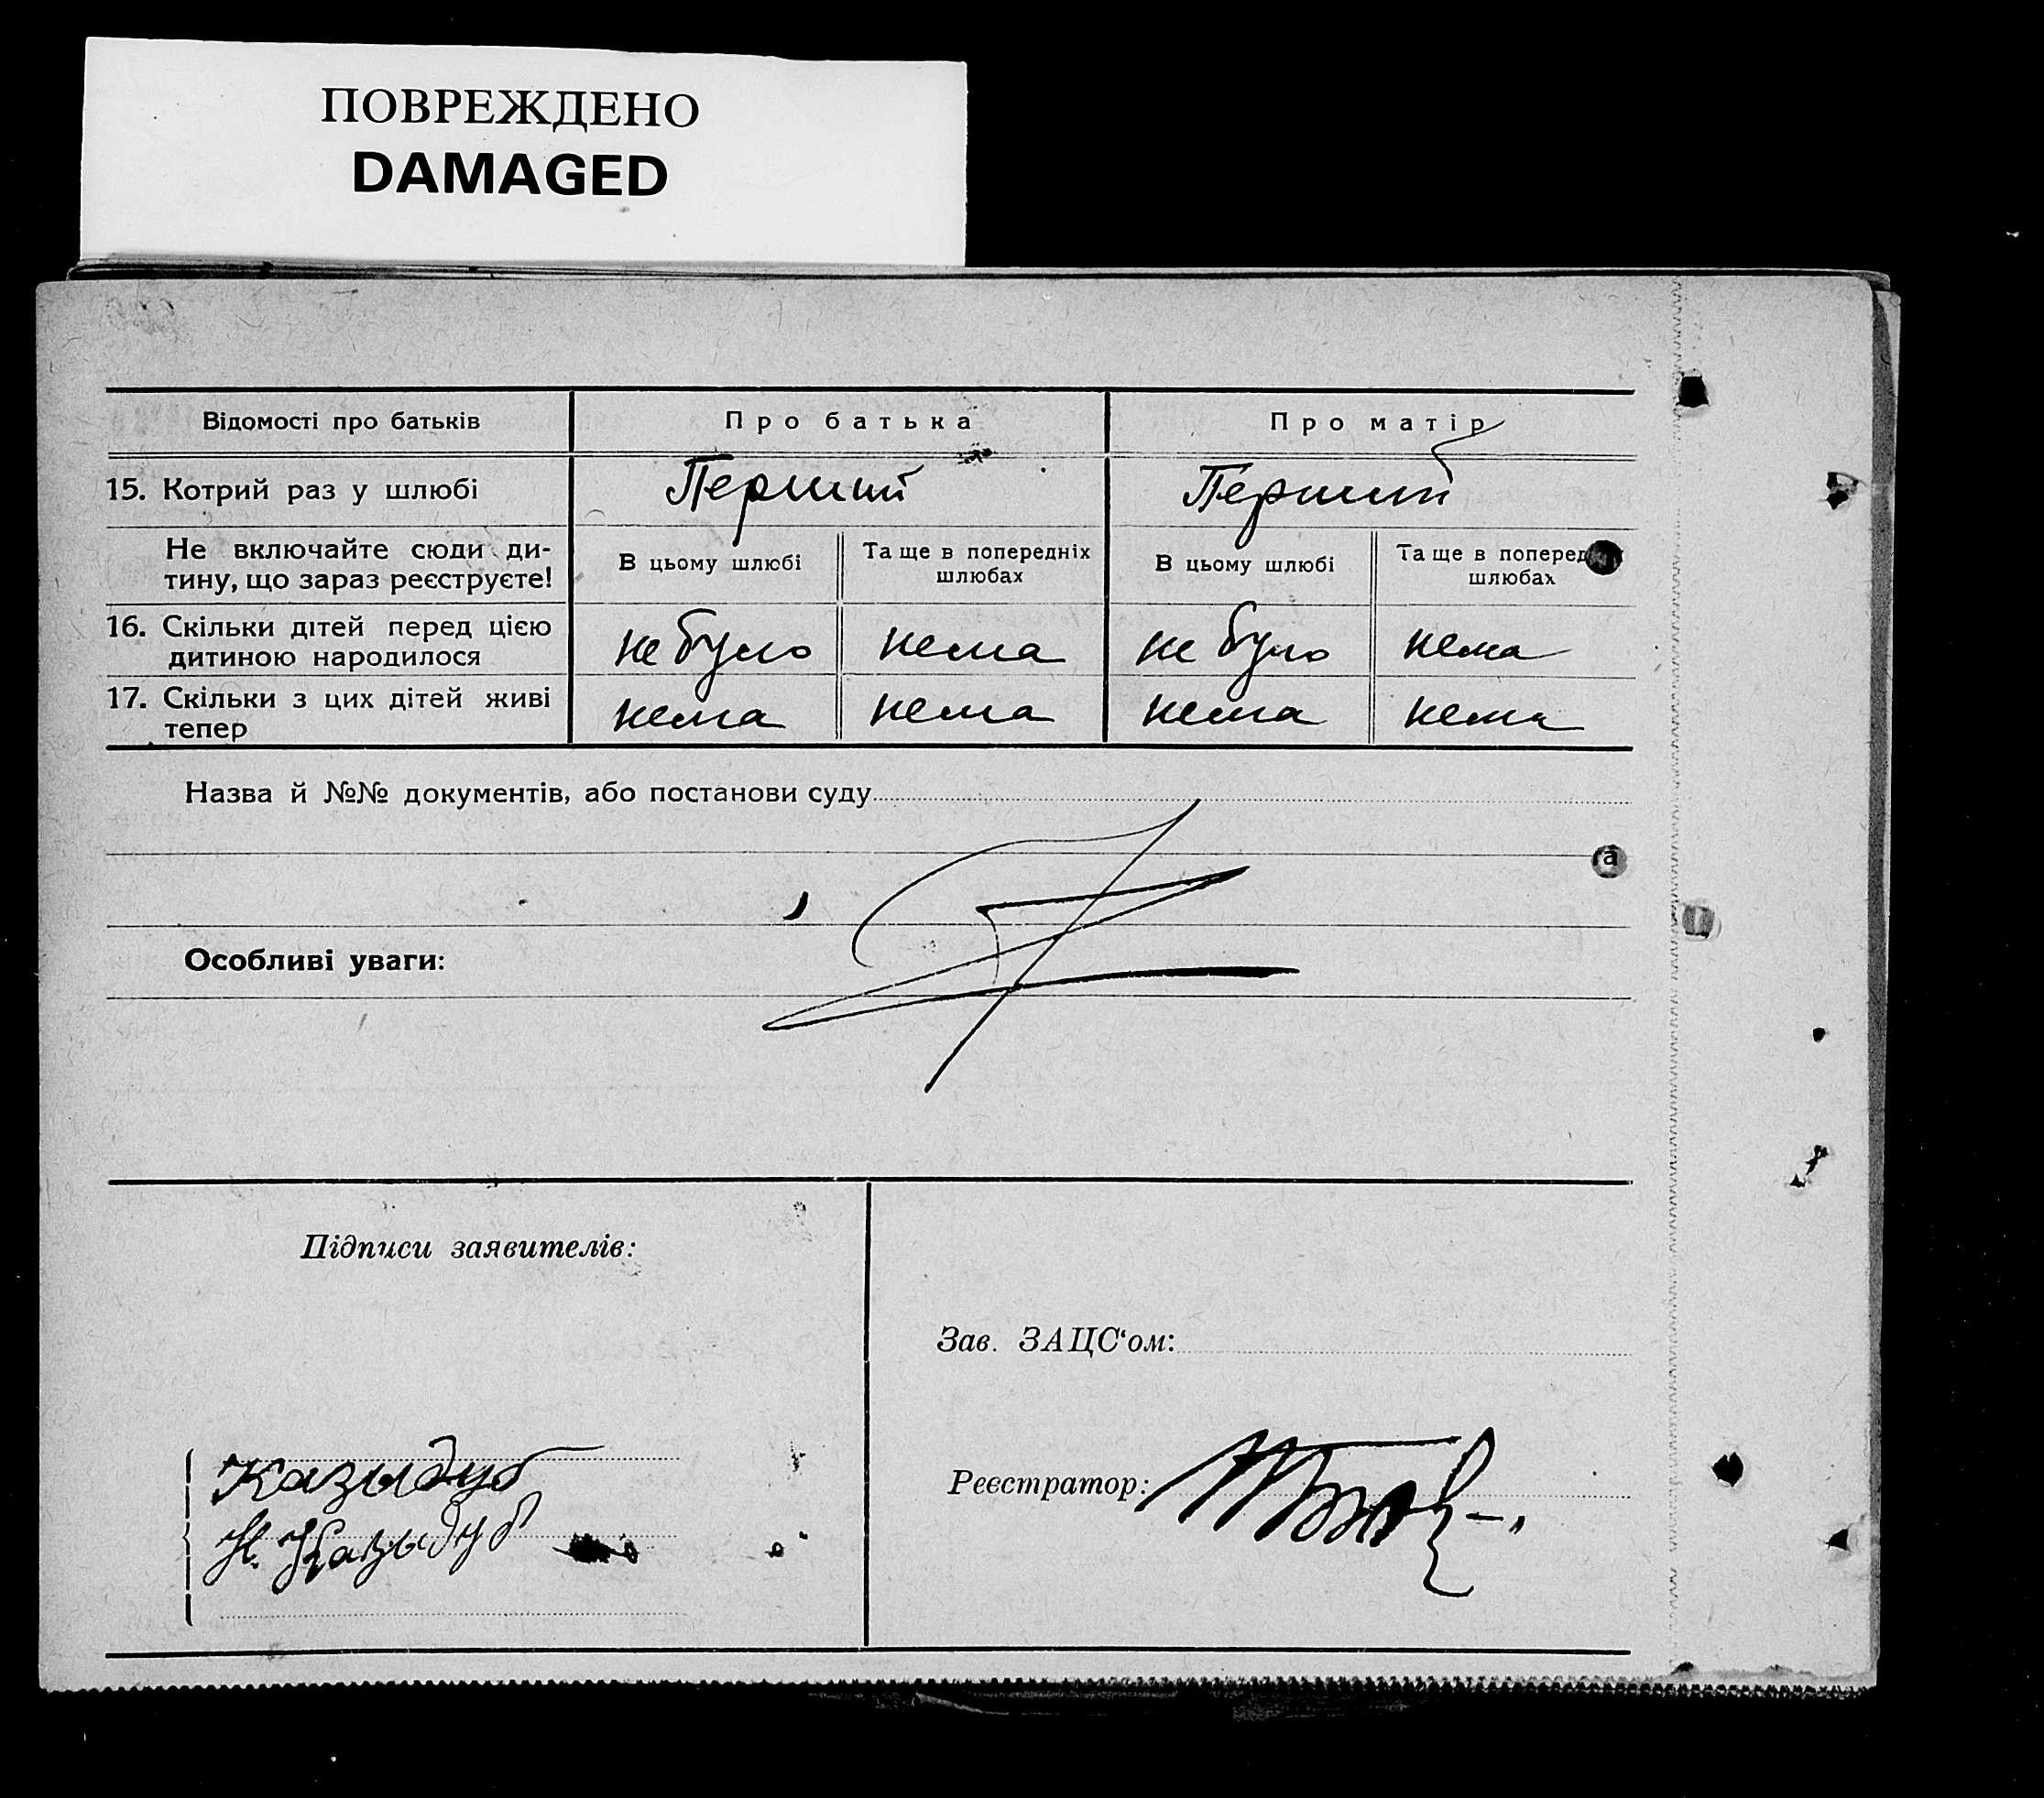 ПОВРЕЖДЕНО
DAMAGED
Відомості про батьків
Про батька
Про матір
15. Котрий раз у шлюбі
Перший
Перший
Не включайте сюди ди-
тину, що зараз реєструєте!
В цьому шлюбі
Та ще в попередніх
шлюбах
В цьому шлюбі
Та ще в поперед
шлюбах
16. Скільки дітей перед цією
дитиною народилося
не було
нема
не було
нема
17. Скільки з цих дітей живі
тепер
нема
нема
нема
нема
Назва й №№ документів, або постанови суду
Особливі уваги:
Підписи заявителів:
Зав. ЗАЦС‘ом:
Казыдуб
Реєстратор:
Н. Казыдуб